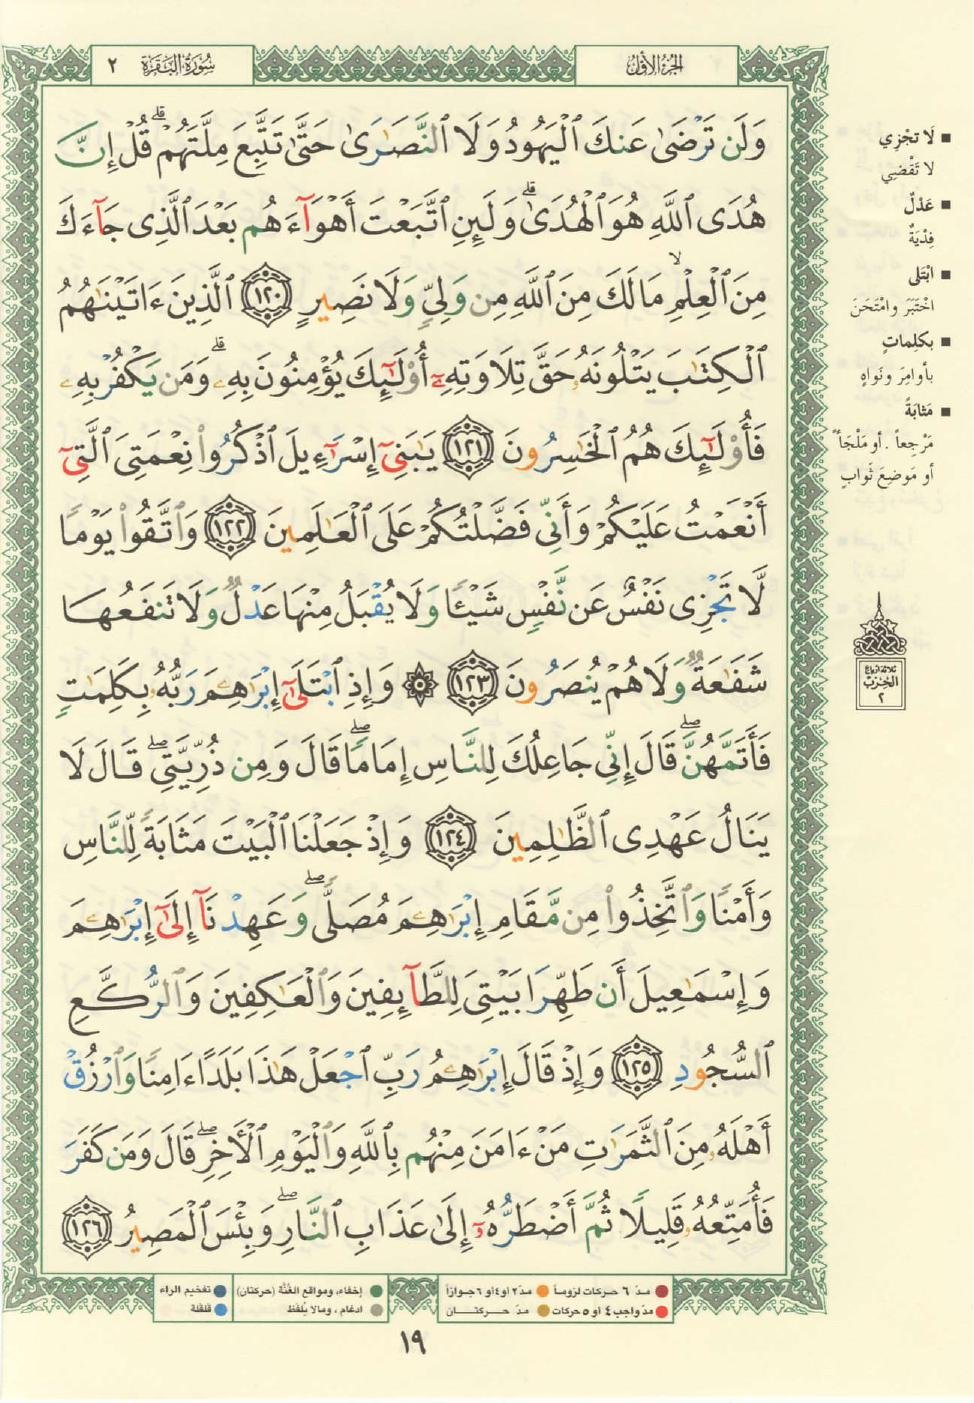 سُورَةُ البَقَرَة ٢
الجُزءُ الأوَّلُ
وَلَن تَرۡضَىٰ عَنكَ ٱلۡيَهُودُ وَلَا ٱلنَّصَٰرَىٰ حَتَّىٰ تَتَّبِعَ مِلَّتَهُمۡۗ قُلۡ إِنَّ
هُدَى ٱللَّهِ هُوَ ٱلۡهُدَىٰۗ وَلَئِنِ ٱتَّبَعۡتَ أَهۡوَآءَهُم بَعۡدَ ٱلَّذِى جَآءَكَ
مِنَ ٱلۡعِلۡمِۙ مَا لَكَ مِنَ ٱللَّهِ مِن وَلِيّٖ وَلَا نَصِيرٍ ١٢٠ ٱلَّذِينَ ءَاتَيۡنَٰهُمُ
ٱلۡكِتَٰبَ يَتۡلُونَهُۥ حَقَّ تِلَاوَتِهِۦٓ أُوْلَٰٓئِكَ يُؤۡمِنُونَ بِهِۦۗ وَمَن يَكۡفُرۡ بِهِۦ
فَأُوْلَٰٓئِكَ هُمُ ٱلۡخَٰسِرُونَ ١٢١ يَٰبَنِىٓ إِسۡرَٰٓءِيلَ ٱذۡكُرُواْ نِعۡمَتِىَ ٱلَّتِىٓ
أَنۡعَمۡتُ عَلَيۡكُمۡ وَأَنِّى فَضَّلۡتُكُمۡ عَلَى ٱلۡعَٰلَمِينَ ١٢٢ وَٱتَّقُواْ يَوۡمٗا
لَّا تَجۡزِى نَفۡسٌ عَن نَّفۡسٖ شَيۡـٔٗا وَلَا يُقۡبَلُ مِنۡهَا عَدۡلٞ وَلَا تَنفَعُهَا
شَفَٰعَةٞ وَلَا هُمۡ يُنصَرُونَ ١٢٣ ۞ وَإِذِ ٱبۡتَلَىٰٓ إِبۡرَٰهِـۧمَ رَبُّهُۥ بِكَلِمَٰتٖ
فَأَتَمَّهُنَّۖ قَالَ إِنِّى جَاعِلُكَ لِلنَّاسِ إِمَامٗاۖ قَالَ وَمِن ذُرِّيَّتِىۖ قَالَ لَا
يَنَالُ عَهۡدِى ٱلظَّٰلِمِينَ ١٢٤ وَإِذۡ جَعَلۡنَا ٱلۡبَيۡتَ مَثَابَةٗ لِّلنَّاسِ
وَأَمۡنٗا وَٱتَّخِذُواْ مِن مَّقَامِ إِبۡرَٰهِـۧمَ مُصَلّٗىۖ وَعَهِدۡنَآ إِلَىٰٓ إِبۡرَٰهِـۧمَ
وَإِسۡمَٰعِيلَ أَن طَهِّرَا بَيۡتِىَ لِلطَّآئِفِينَ وَٱلۡعَٰكِفِينَ وَٱلرُّكَّعِ
ٱلسُّجُودِ ١٢٥ وَإِذۡ قَالَ إِبۡرَٰهِـۧمُ رَبِّ ٱجۡعَلۡ هَٰذَا بَلَدًا ءَامِنٗا وَٱرۡزُقۡ
أَهۡلَهُۥ مِنَ ٱلثَّمَرَٰتِ مَنۡ ءَامَنَ مِنۡهُم بِٱللَّهِ وَٱلۡيَوۡمِ ٱلۡأٓخِرِۖ قَالَ وَمَن كَفَرَ
فَأُمَتِّعُهُۥ قَلِيلٗا ثُمَّ أَضۡطَرُّهُۥٓ إِلَىٰ عَذَابِ ٱلنَّارِۖ وَبِئۡسَ ٱلۡمَصِيرُ ١٢٦
■ لَا تجْزِي
لا تَقْضِي
■ عَدْلٌ
فِدْيَةٌ
■ ابْتَلى
اخْتَبَرَ وامْتَحَنَ
■ بكلِماتٍ
بأوامِرَ ونَواهٍ
■ مَثابَةً
مَرْجِعاً . أو مَلْجَأً
أو مَوضِعَ ثَوابٍ
ثلاثة أرباع
الحِزب
٢
مدّ ٦ حركات لزوماً مدّ٢ أو٤أو ٦جوازاً إخفاء، ومواقع الغُنَّة (حركتان) تفخيم الراء
مدّ واجب ٤ أو ٥ حركات مدّ حـــركتــــان ادغام ، ومالا يُلفَظ قلقلة
١٩